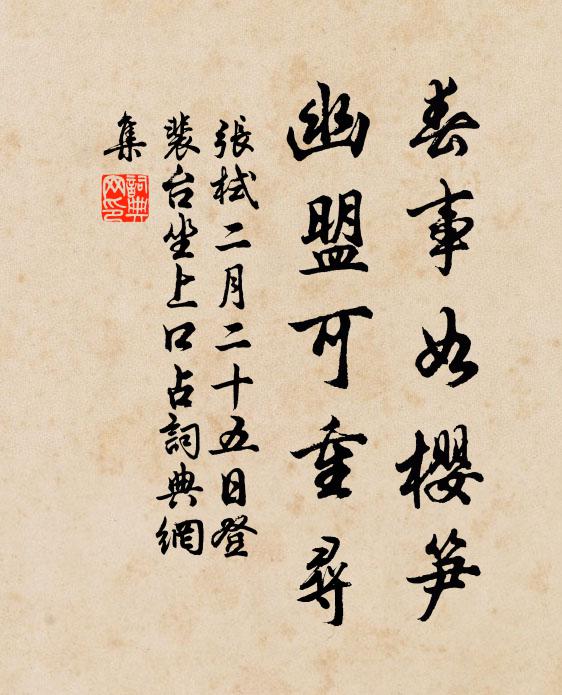 春事如櫻笋
幽盟可重尋
張栻二月二十五日登
裴台坐上口占詞典網
集
詞典
网印